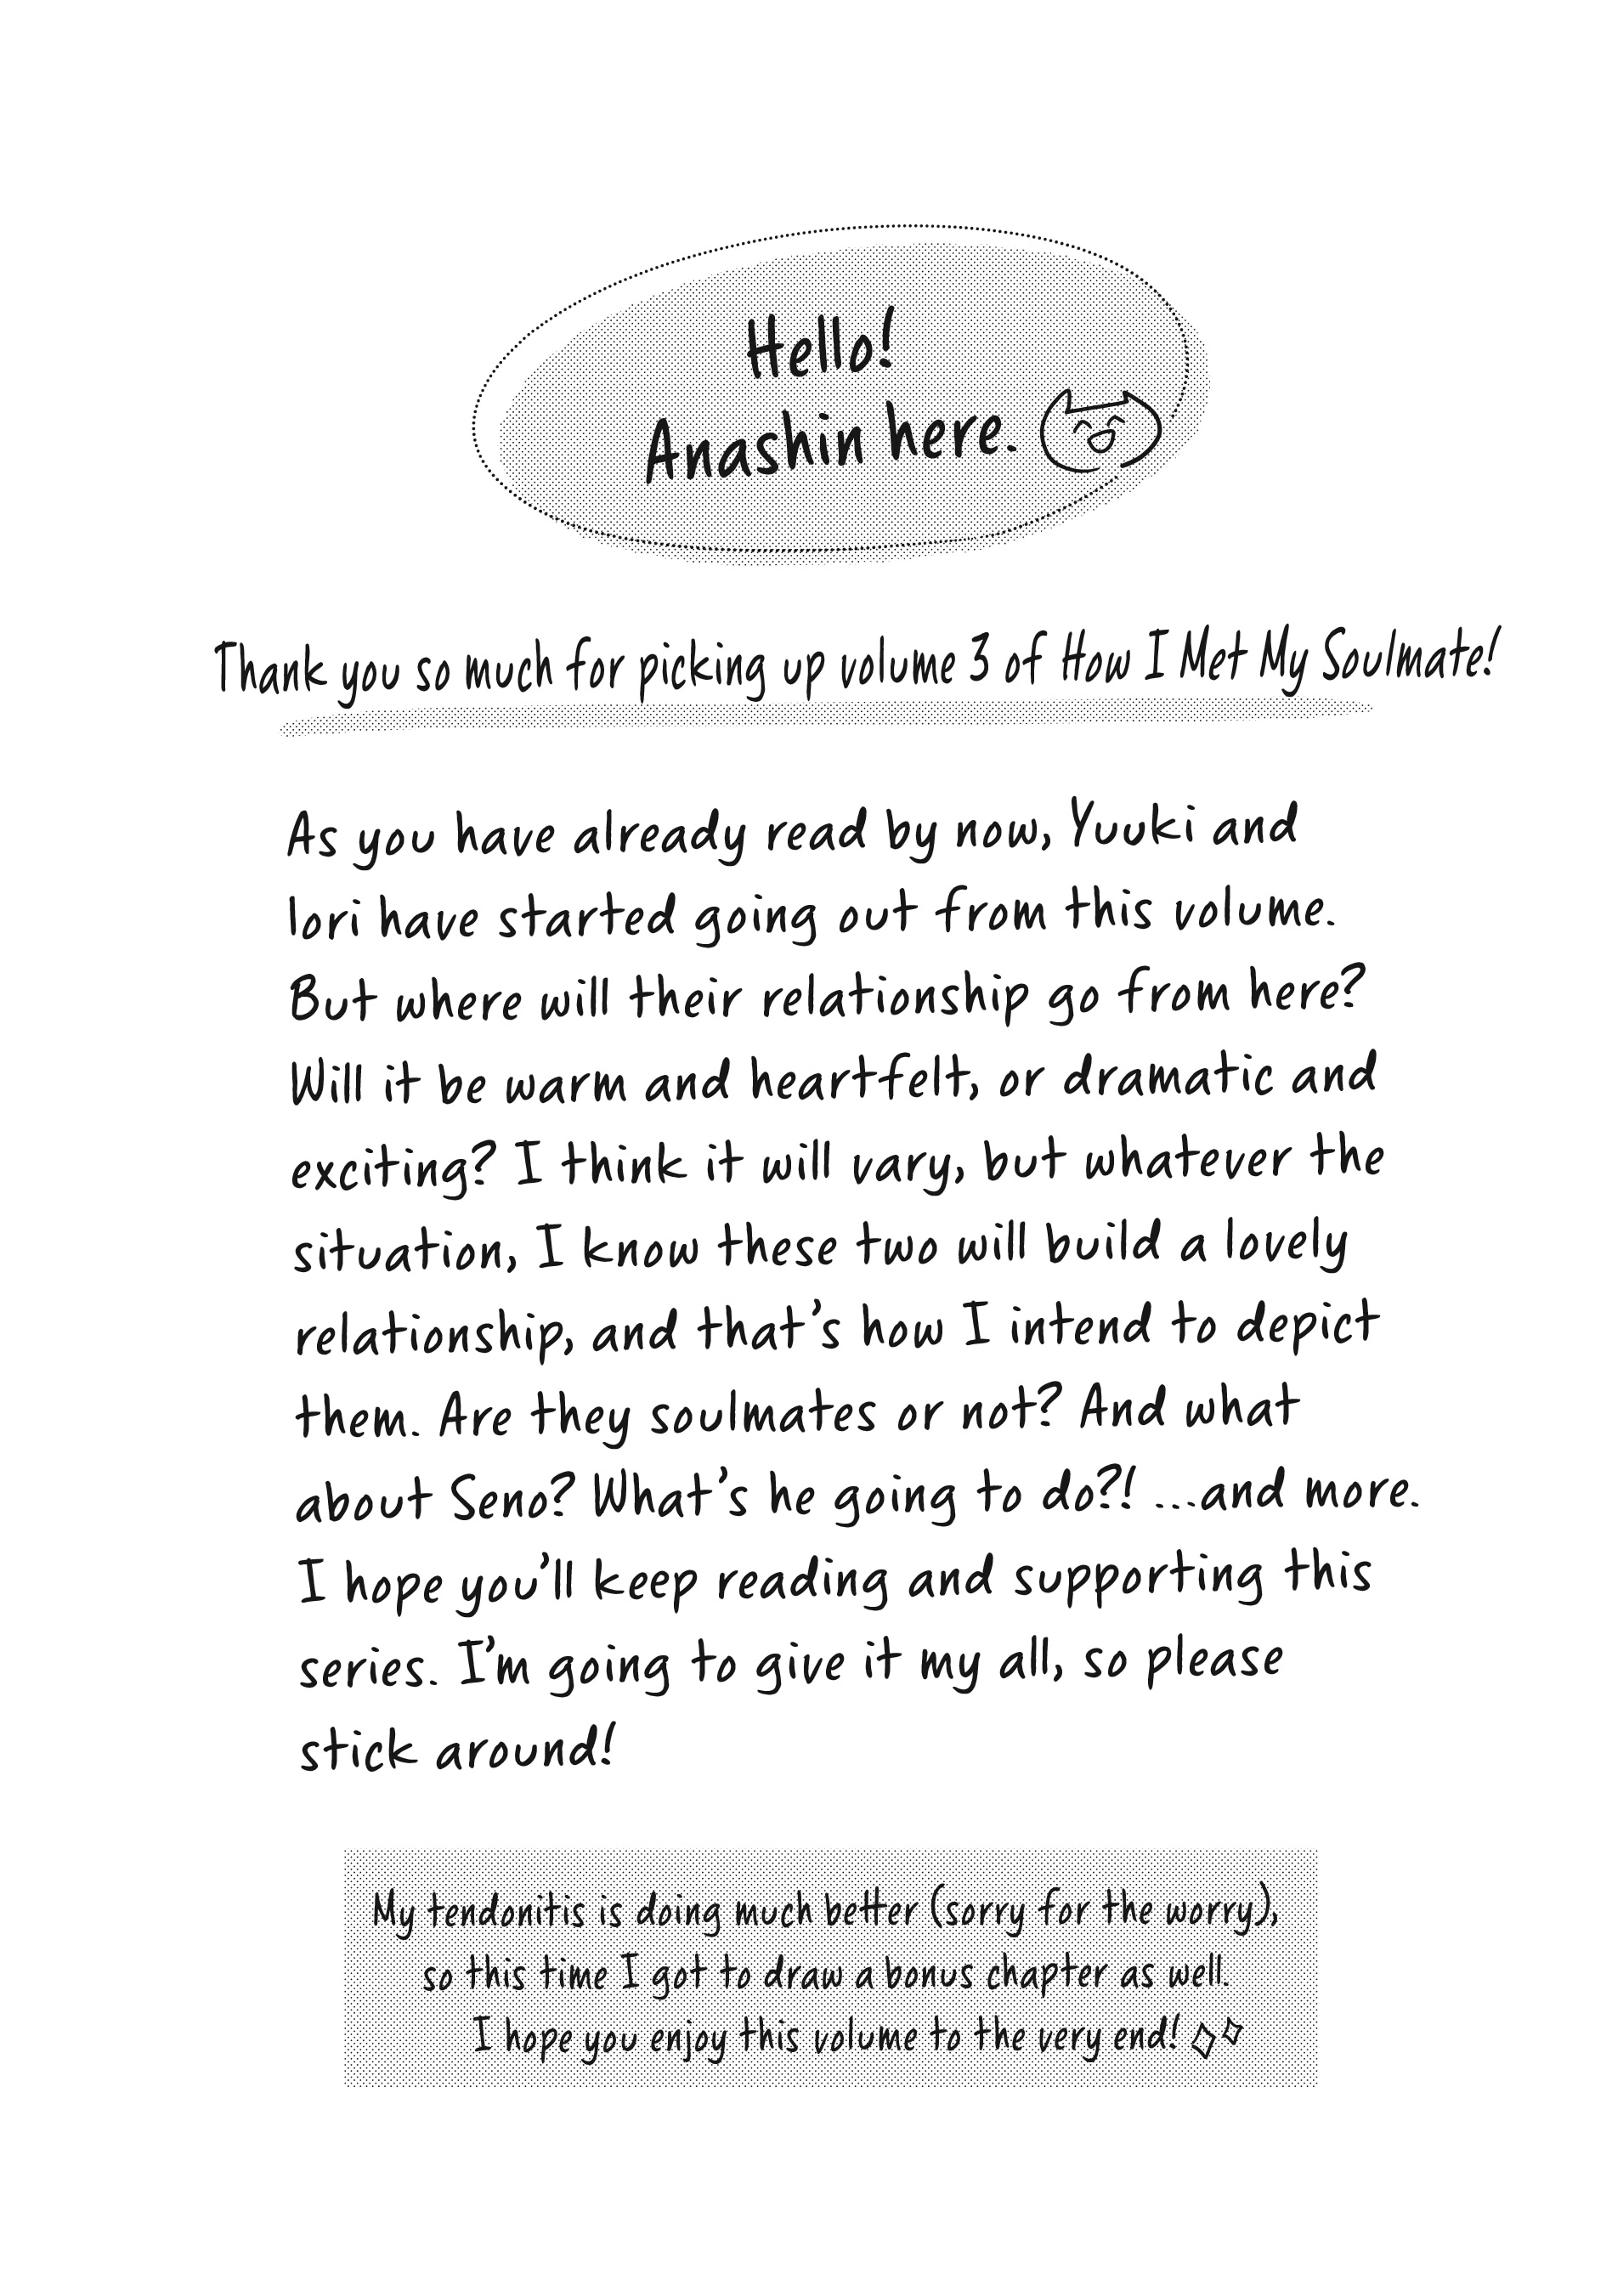 Hello!
Anashin here.
Thank you so much for picking up volume 3 of How I Met My Soulmate!
As you have already read by now, Yuuki and
Iori have started going out from this volume.
But where will their relationship go from here?
Will it be warm and heartfelt, or dramatic and
exciting? I think it will vary, but whatever the
situation, I know these two will build a lovely
relationship, and that's how I intend to depict
them. Are they soulmates or not? And what
about Seno? What's he going to do?! ...and more.
I hope you'll keep reading and supporting this
series. I'm going to give it my all, so please
stick around!
My tendonitis is doing much better (sorry for the worry),
so this time I got to draw a bonus chapter as well.
I hope you enjoy this volume to the very end!